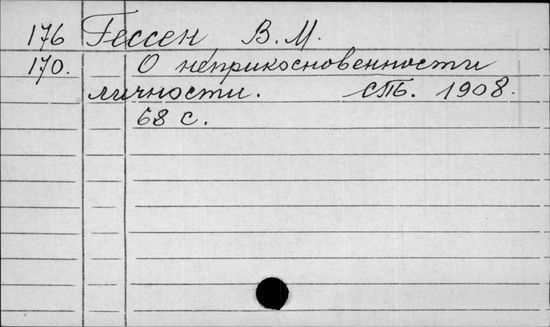 176 Гессен В. М.
170. О неприкосновенности
личности. СПБ. 1908.
68 с.